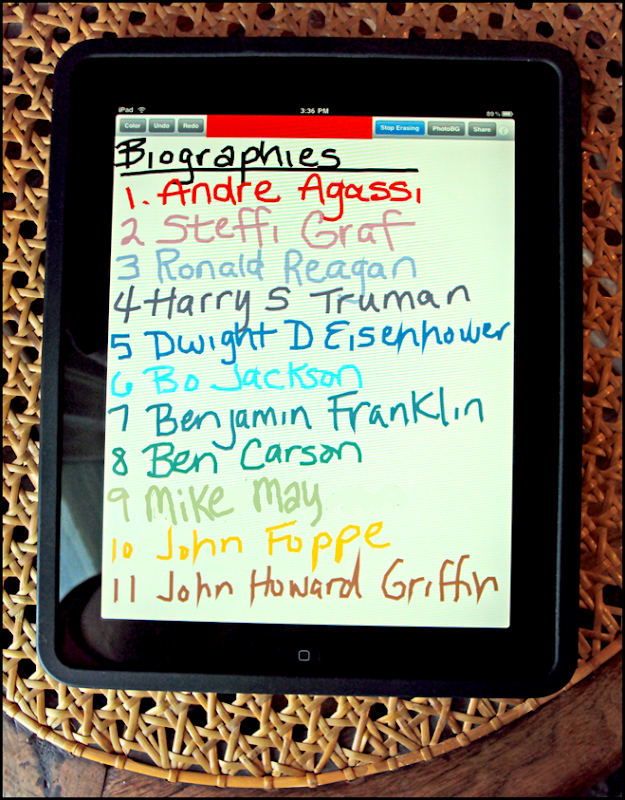 iPad 3:36 PM 89%
Color Undo Redo Stop Erasing PhotoBG Share
Biographies
1. Andre Agassi
2 Steffi Graf
3 Ronald Reagan
4 Harry S Truman
5 Dwight D Eisenhower
6 Bo Jackson
7 Benjamin Franklin
8 Ben Carson
9 Mike May
10 John Foppe
11 John Howard Griffin